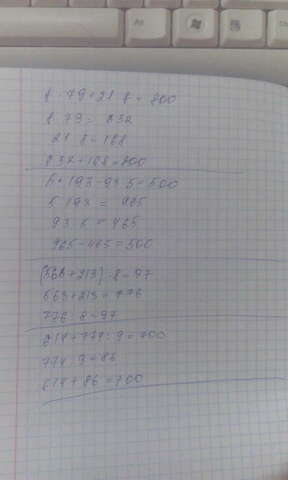 8 · 79 + 21 · 8 = 800
8 · 79 = 632
21 · 8 = 168
632 + 168 = 800
5 · 193 - 93 · 5 = 500
5 · 193 = 965
93 · 5 = 465
965 - 465 = 500
(563 + 213) : 8 = 97
563 + 213 = 776
776 : 8 = 97
614 + 774 : 9 = 700
774 : 9 = 86
614 + 86 = 700